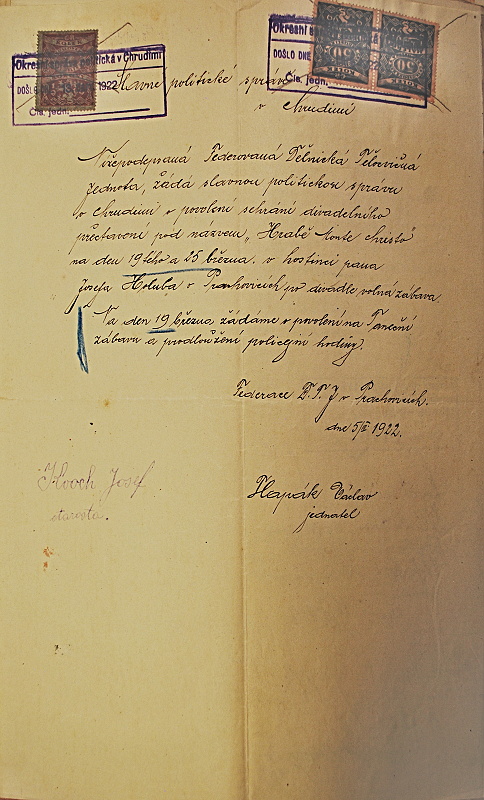 Okresní správa politická v Chrudimi
DOŠLO DNE 1922
Čís. jedn.
Okresní
DOŠLO DNE
Čís. jedn.
50
50
Slavné politické správě
v Chrudimi
Nížepodepsaná Federovaná Dělnická Tělocvičná
Jednota, žádá slavnou politickou správu
v Chrudimi o povolení sehrání divadelního
představení pod názvem „Hrabě Monte Christo"
na den 19tého a 25 března. v hostinci pana
Josefa Holuba v Prachovicích, po divadle volná zábava.
Na den 19 března žádáme o povolení na Taneční
zábavu a prodloužení policejní hodiny.
Federace D.T.J v Prachovicích.
dne 5/II 1922.
Josef
starosta.
Hapák Václav
jednatel